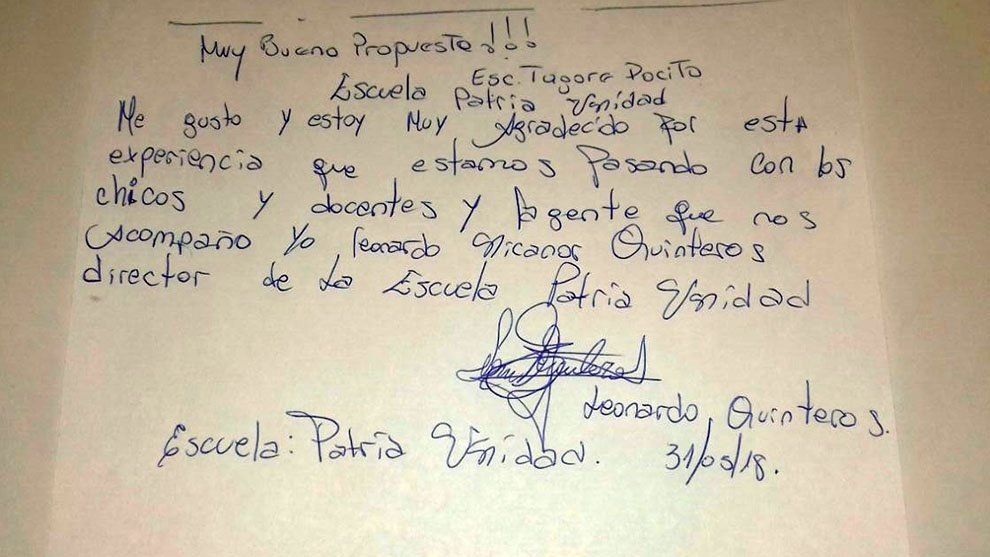 Muy Bueno Propuesta!!!
Esc. Tagore Pocito
Escuela Patria Unidad
Me gusto y estoy Muy Agradecido por esta
experiencia que estamos Pasando con los
chicos y docentes y la gente que nos
Acompaño Yo Leonardo Nicanor Quinteros
director de La Escuela Patria Unidad
Leonardo, Quinteros.
Escuela: Patria Unidad. 31/05/18.